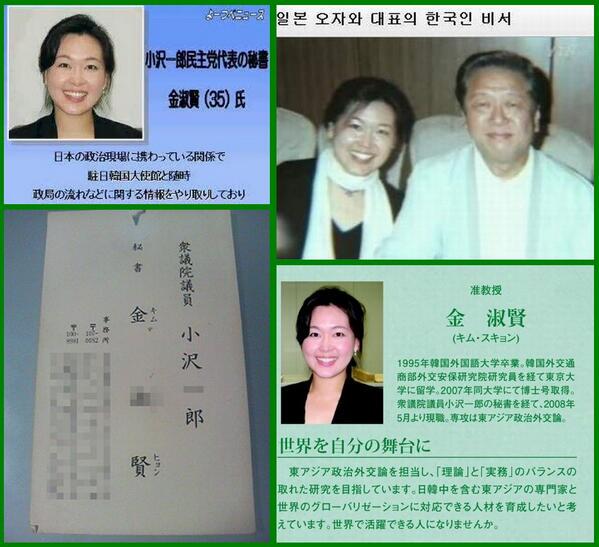 よーつべニュース
小沢一郎民主党代表の秘書
金淑賢(35)氏
日本の政治現場に携わっている関係で
駐日韓国大使館と随時
政局の流れなどに関する情報をやり取りしており
일본 오자와 대표의 한국인 비서
衆議院議員 小沢 郎
秘書 金 賢
キム
ヒョン
事務所
〒100-8981
〒100-0082
准教授
金 淑賢
(キム・スキョン)
1995年韓国外国語大学卒業。韓国外交通
商部外交安保研究院研究員を経て東京大
学に留学。2007年同大学にて博士号取得。
衆議院議員小沢一郎の秘書を経て、2008年
5月より現職。専攻は東アジア政治外交論。
世界を自分の舞台に
東アジア政治外交論を担当し、「理論」と「実務」のバランスの
取れた研究を目指しています。日韓中を含む東アジアの専門家と
世界のグローバリゼーションに対応できる人材を育成したいと考
えています。世界で活躍できる人になりませんか。